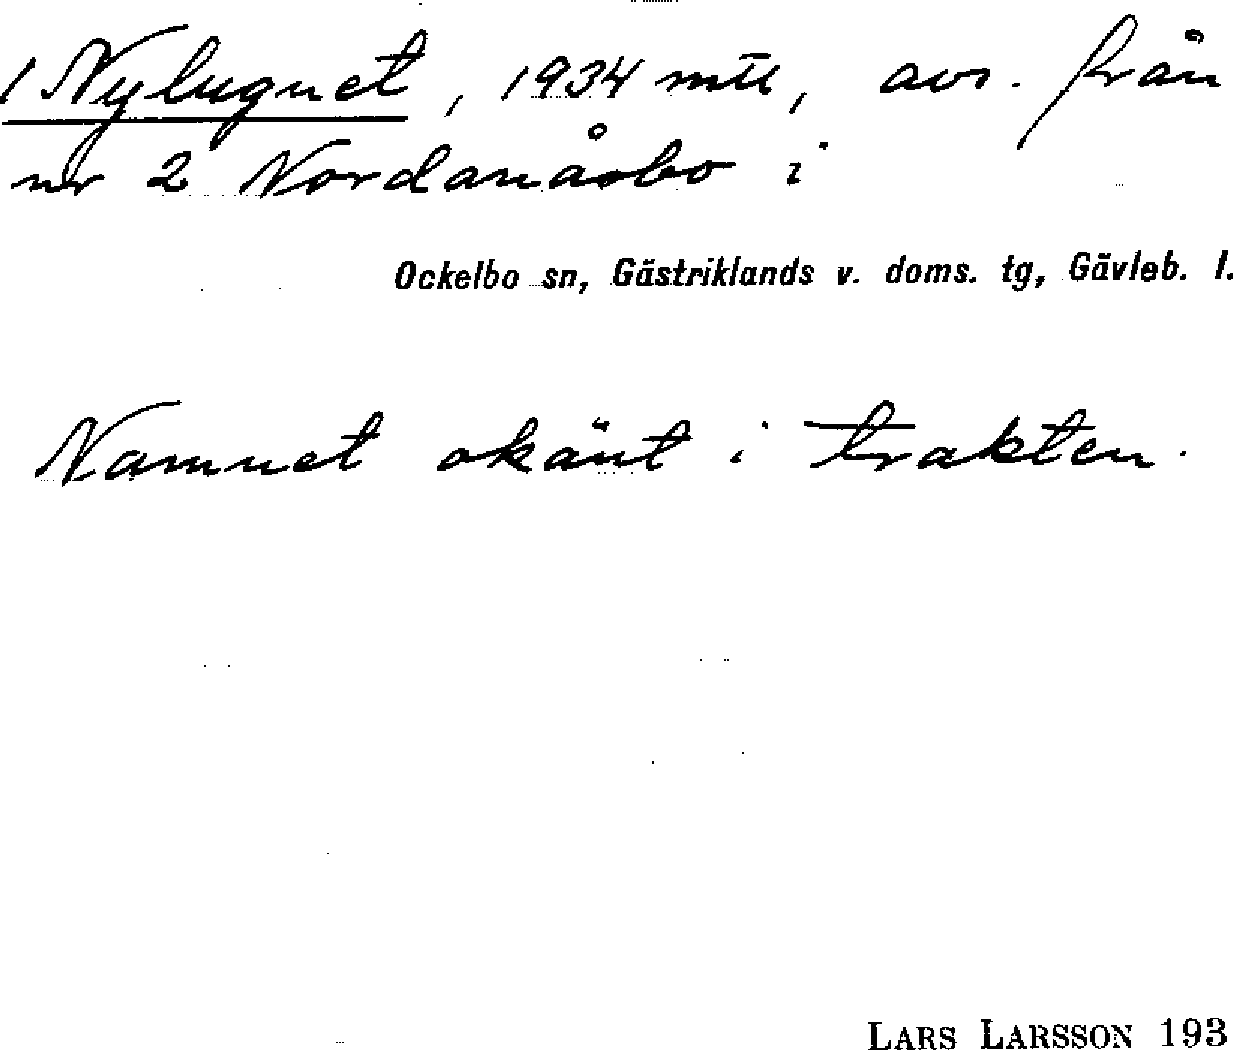 1 Nylugnet, 1934 mtl, avs. från
nr 2 Nordanåsbo i
Ockelbo sn, Gästriklands v. doms. tg, Gävleb. l.
Namnet okänt i trakten.
LARS LARSSON 193